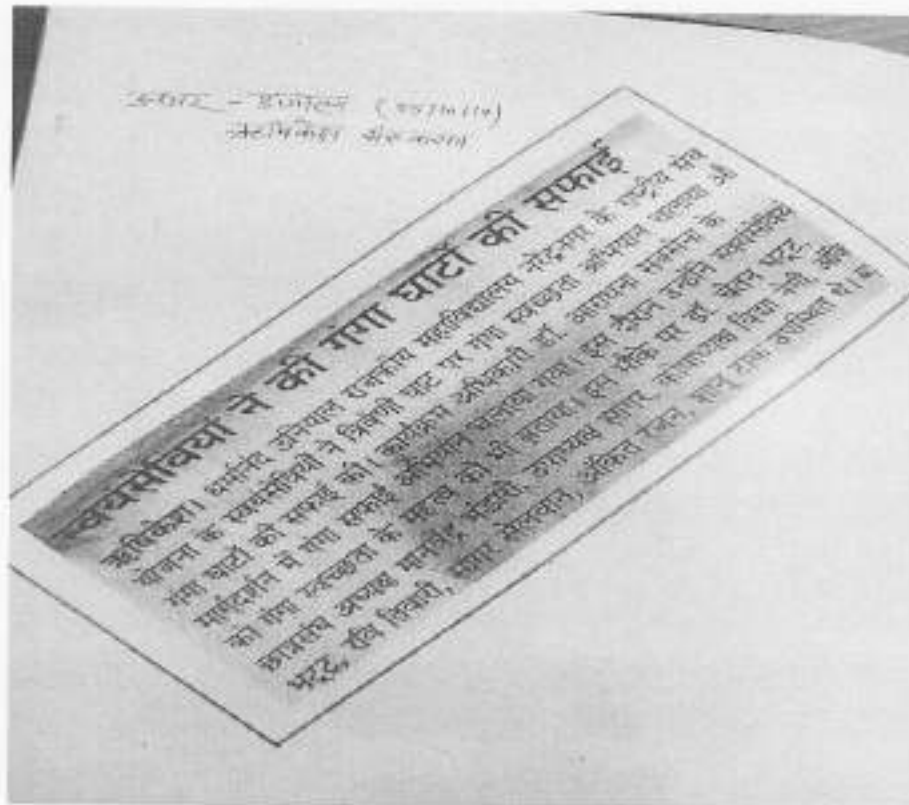 स्वयंसेवियों ने की गंगा घाटों की सफाई
ऋषिकेश। धर्मानंद उनियाल राजकीय महाविद्यालय नरेंद्रनगर के राष्ट्रीय सेवा
योजना के स्वयंसेवियों ने त्रिवेणी घाट पर गंगा स्वच्छता अभियान चलाया औ
गंगा घाटों की सफाई की। कार्यक्रम अधिकारी डॉ. आराधना सक्सेना के
मार्गदर्शन में गंगा सफाई अभियान चलाया गया। इस दौरान उन्होंने स्वयंसेवियों
को गंगा स्वच्छता के महत्त्व को भी बताया। इस मौके पर डॉ. चेतन भट्ट,
छात्रसंघ अध्यक्ष मानवेंद्र भंडारी, उपाध्यक्ष सागर, जोशी, अंकि
भट्ट, रवि तिवारी, सागर सेलवान, अंकित रंजन, भानु टांक उपस्थित थे।